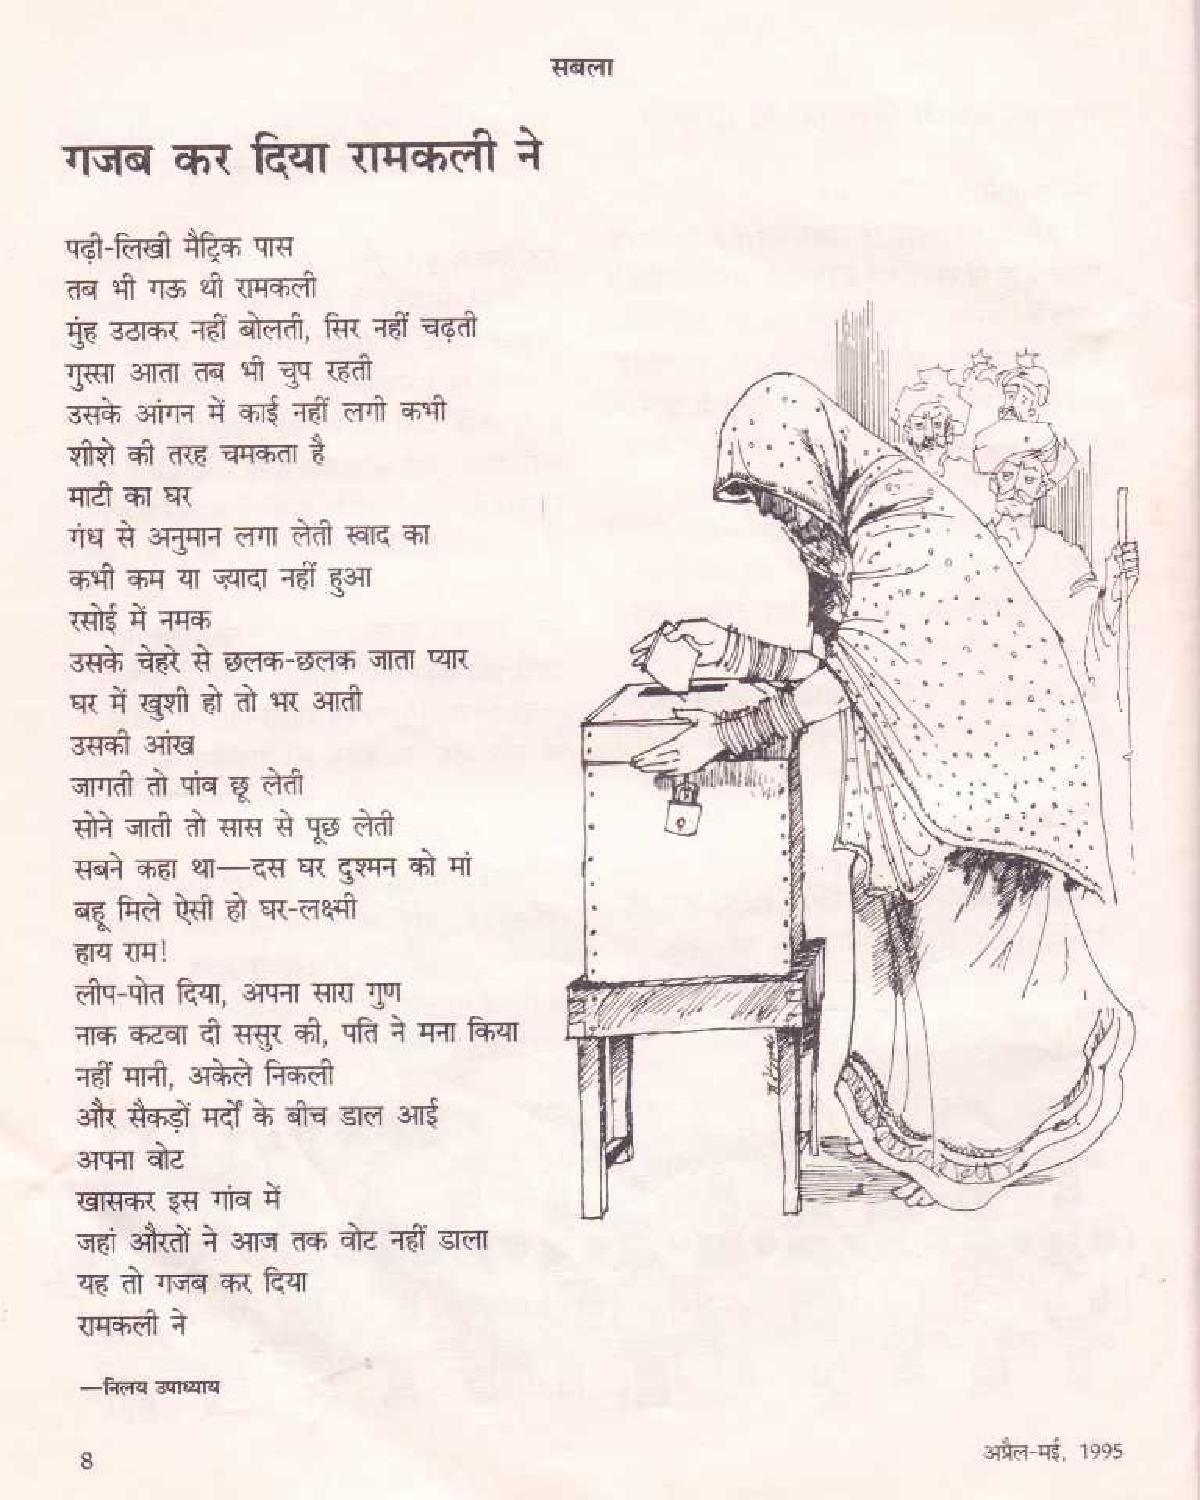 सबला
गजब कर दिया रामकली ने
पढ़ी-लिखी मैट्रिक पास
तब भी गऊ थी रामकली
मुंह उठाकर नहीं बोलती, सिर नहीं चढ़ती
गुस्सा आता तब भी चुप रहती
उसके आंगन में काई नहीं लगी कभी
शीशे की तरह चमकता है
माटी का घर
गंध से अनुमान लगा लेती स्वाद का
कभी कम या ज़्यादा नहीं हुआ
रसोई में नमक
उसके चेहरे से छलक-छलक जाता प्यार
घर में खुशी हो तो भर आती
उसकी आंख
जागती तो पांव छू लेती
सोने जाती तो सास से पूछ लेती
सबने कहा था—दस घर दुश्मन को मां
बहू मिले ऐसी हो घर-लक्ष्मी
हाय राम!
लीप-पोत दिया, अपना सारा गुण
नाक कटवा दी ससुर की, पति ने मना किया
नहीं मानी, अकेले निकली
और सैकड़ों मर्दों के बीच डाल आई
अपना वोट
खासकर इस गांव में
जहां औरतों ने आज तक वोट नहीं डाला
यह तो गजब कर दिया
रामकली ने
—निलय उपाध्याय
8
अप्रैल-मई, 1995